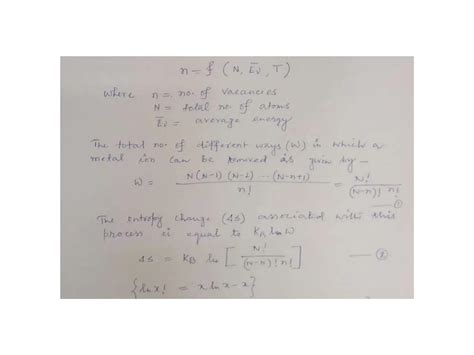 n = f (N, Ēv, T)
where n = no. of vacancies
N = total no of atoms
Ēv = average energy
The total no. of different ways (W) in which a
metal ion can be removed is given by —
W = N(N-1) (N-2) ... (N-n+1) / n! = N! / (N-n)! n! — ①
The entropy change (ΔS) associated with this
process is equal to KB ln W
ΔS = KB ln [ N! / (N-n)! n! ] — ②
{ ln x! = x ln x - x }